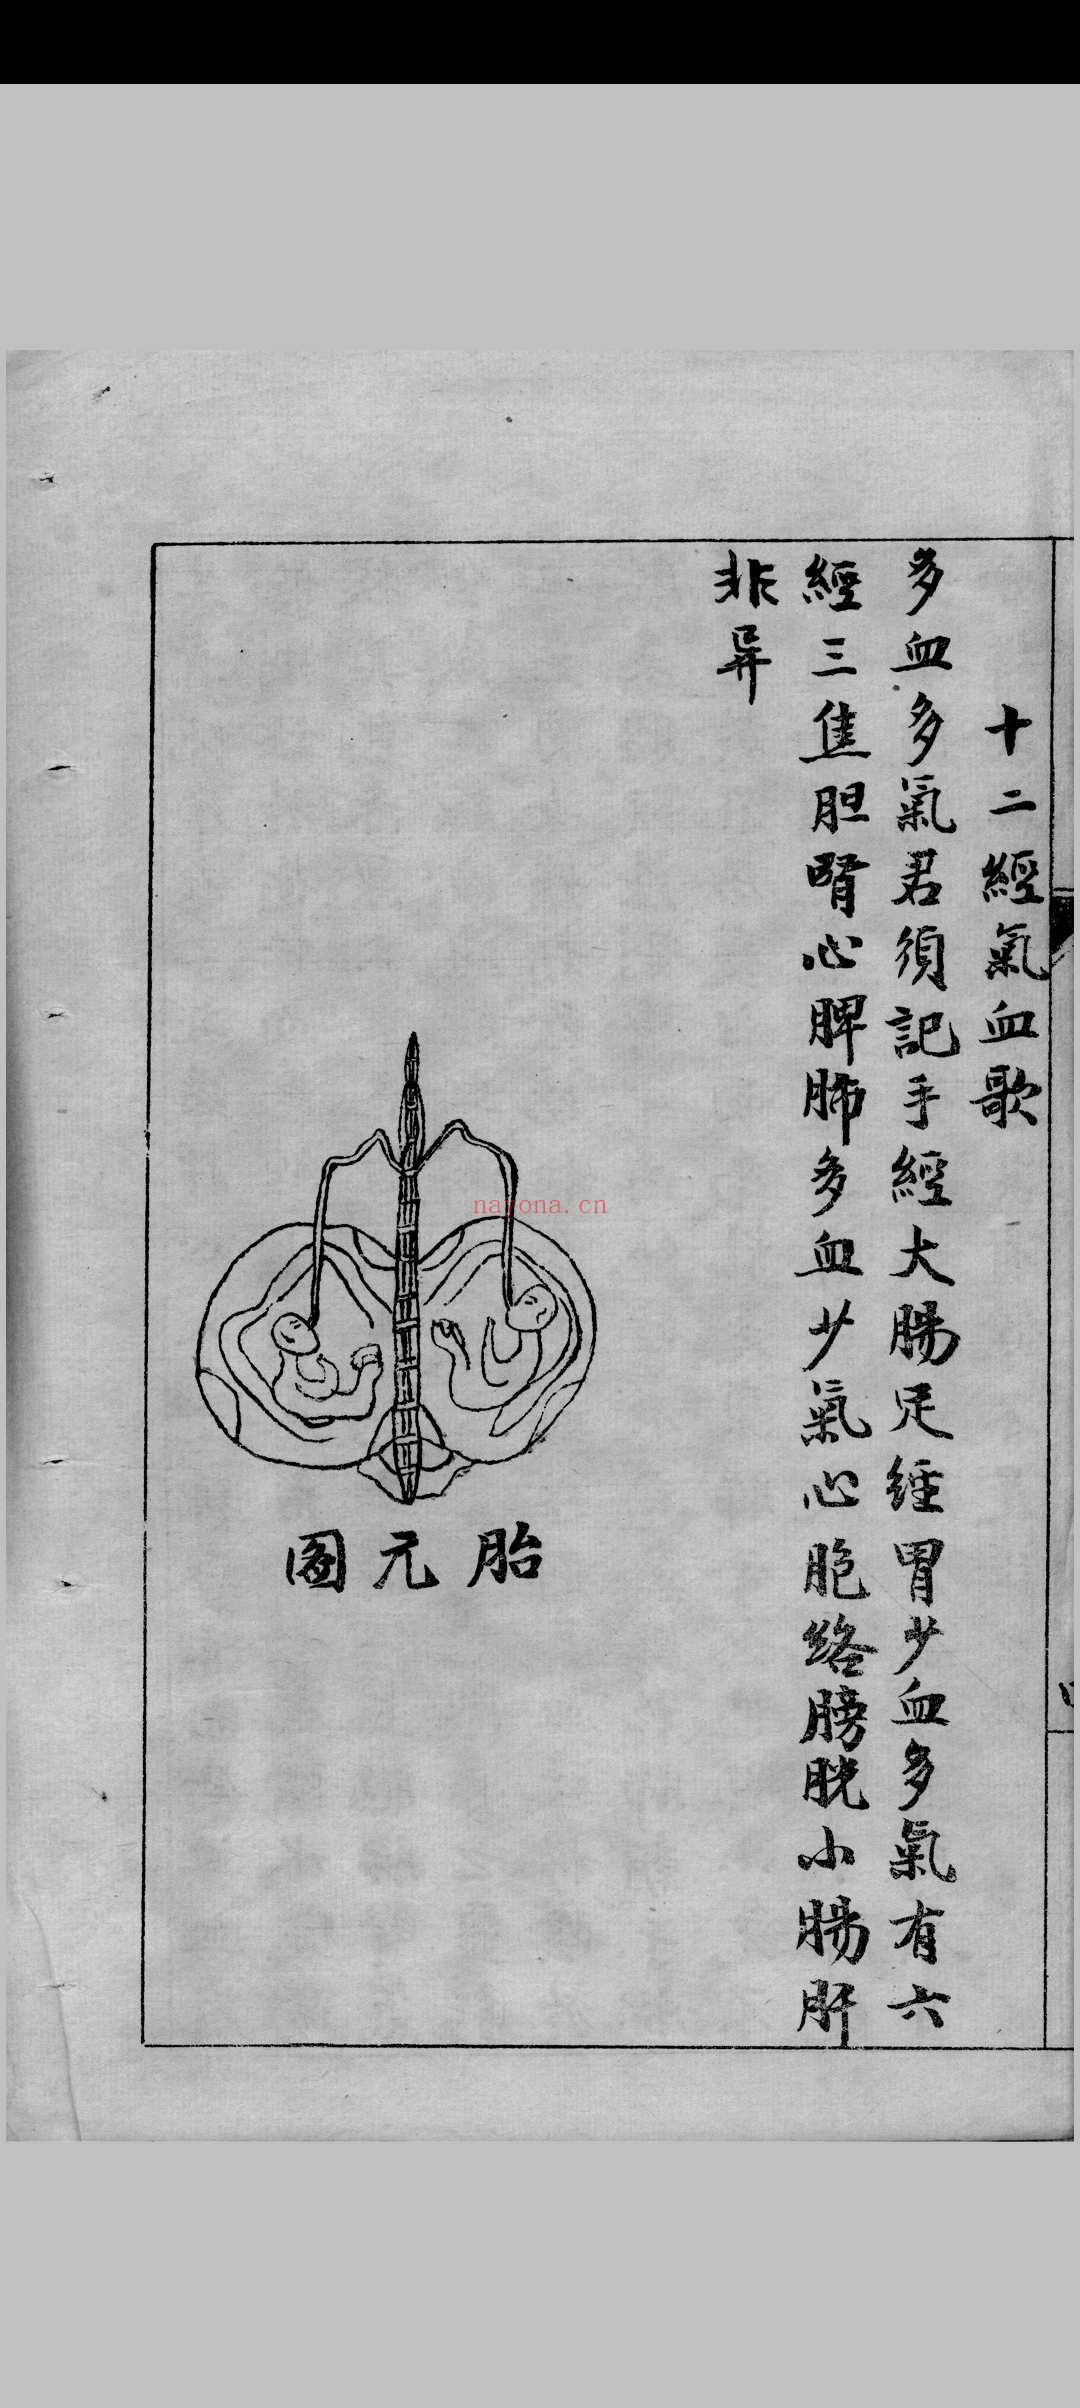 十二經氣血歌
多血多氣君須記手經大腸足經胃少血多氣有六
經三焦胆腎心脾肺多血少氣心胞絡膀胱小腸肝
非异
胎元圖
nayona.cn